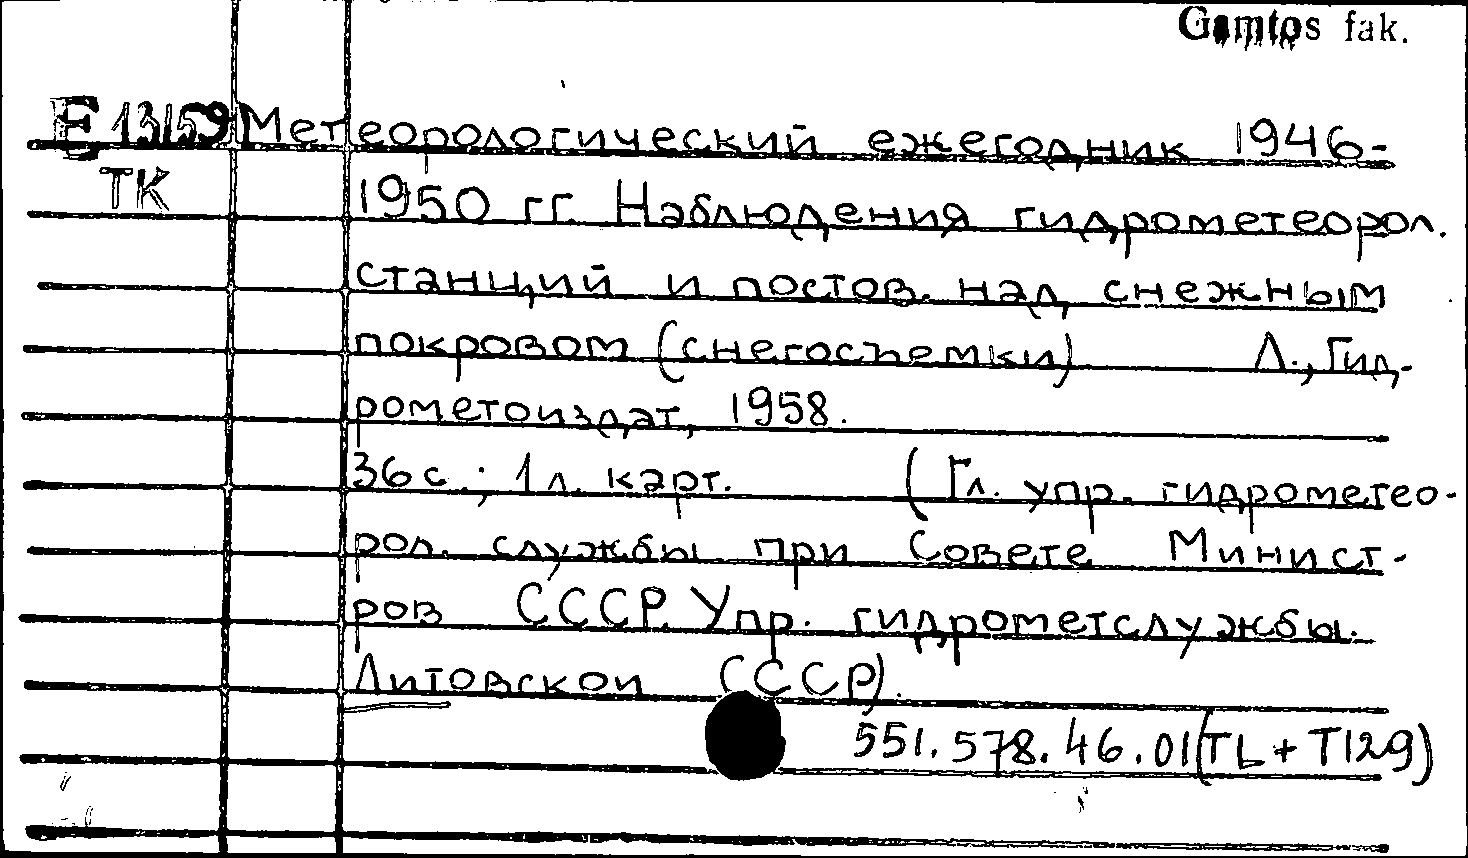 Gamtos fak.
E 13159 Метеорологический ежегодник 1946-
TK 1950 гг. Наблюдения гидрометеорол.
станций и постов. над снежным
покровом (снегосъемки) Л., Гид-
рометоиздат, 1958.
36 с.; 1 л. карт. (Гл. упр. гидрометео-
рол. службы при Совете Минист-
ров СССР. Упр. гидрометслужбы.
Литовской СССР).
551.578.46.01(TL+T129)